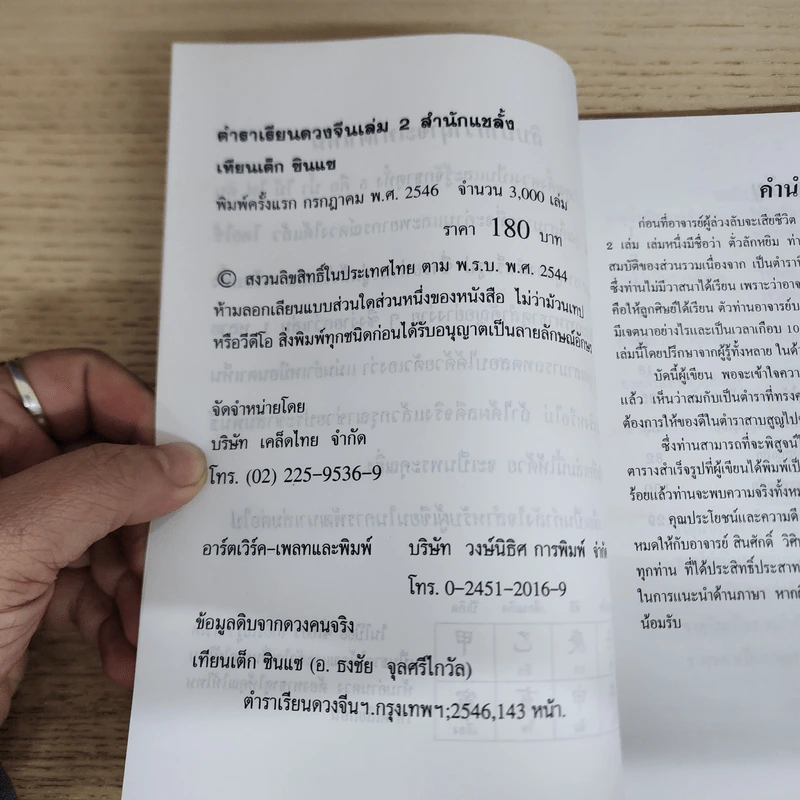 ตำราเรียนดวงจีนเล่ม 2 สำนักแชลั้ง
เทียนเต็ก ซินแซ
พิมพ์ครั้งแรก กรกฎาคม พ.ศ. 2546 จำนวน 3,000 เล่ม
ราคา 180 บาท
© สงวนลิขสิทธิ์ในประเทศไทย ตาม พ.ร.บ. พ.ศ. 2544
ห้ามลอกเลียนแบบส่วนใดส่วนหนึ่งของหนังสือ ไม่ว่าม้วนเทป
หรือวีดีโอ สิ่งพิมพ์ทุกชนิดก่อนได้รับอนุญาตเป็นลายลักษณ์อักษร
จัดจำหน่ายโดย
บริษัท เคล็ดไทย จำกัด
โทร. (02) 225-9536-9
อาร์ตเวิร์ค-เพลทและพิมพ์ บริษัท วงษ์นิธิศ การพิมพ์ จำกัด
โทร. 0-2451-2016-9
ข้อมูลดิบจากดวงคนจริง
เทียนเต็ก ซินแซ (อ. ธงชัย จุลศรีไกวัล)
ตำราเรียนดวงจีนฯ.กรุงเทพฯ;2546,143 หน้า.
คำนำ
ก่อนที่อาจารย์ผู้ล่วงลับจะเสียชีวิต
2 เล่ม เล่มหนึ่งมีชื่อว่า ตั่วลักหยิม
สมบัติของส่วนรวมเนื่องจาก เป็นตำราที่
ซึ่งท่านไม่มีวาสนาได้เรียน เพราะว่าอาจ
คือให้ลูกศิษย์ได้เรียน ตัวท่านอาจารย์
มีเจตนาอย่างไรและเป็นเวลาเกือบ 10
เล่มนี้โดยปรึกษาจากผู้รู้ทั้งหลาย
บัดนี้ผู้เขียน พอจะเข้าใจความ
แล้ว เห็นว่าสมกับเป็นตำราที่ทรงค
ต้องการให้ของดีในตำราสาบสูญไป
ซึ่งท่านสามารถที่จะพิสูจน์
ตารางสำเร็จรูปที่ผู้เขียนได้พิมพ์เป็
ร้อยแล้วท่านจะพบความจริงทั้งหม
คุณประโยชน์และความดี
หมดให้กับอาจารย์ สินศักดิ์ วิศิ
ทุกท่าน ที่ได้ประสิทธิ์ประสาท
ในการแนะนำด้านภาษา หาก
น้อมรับ